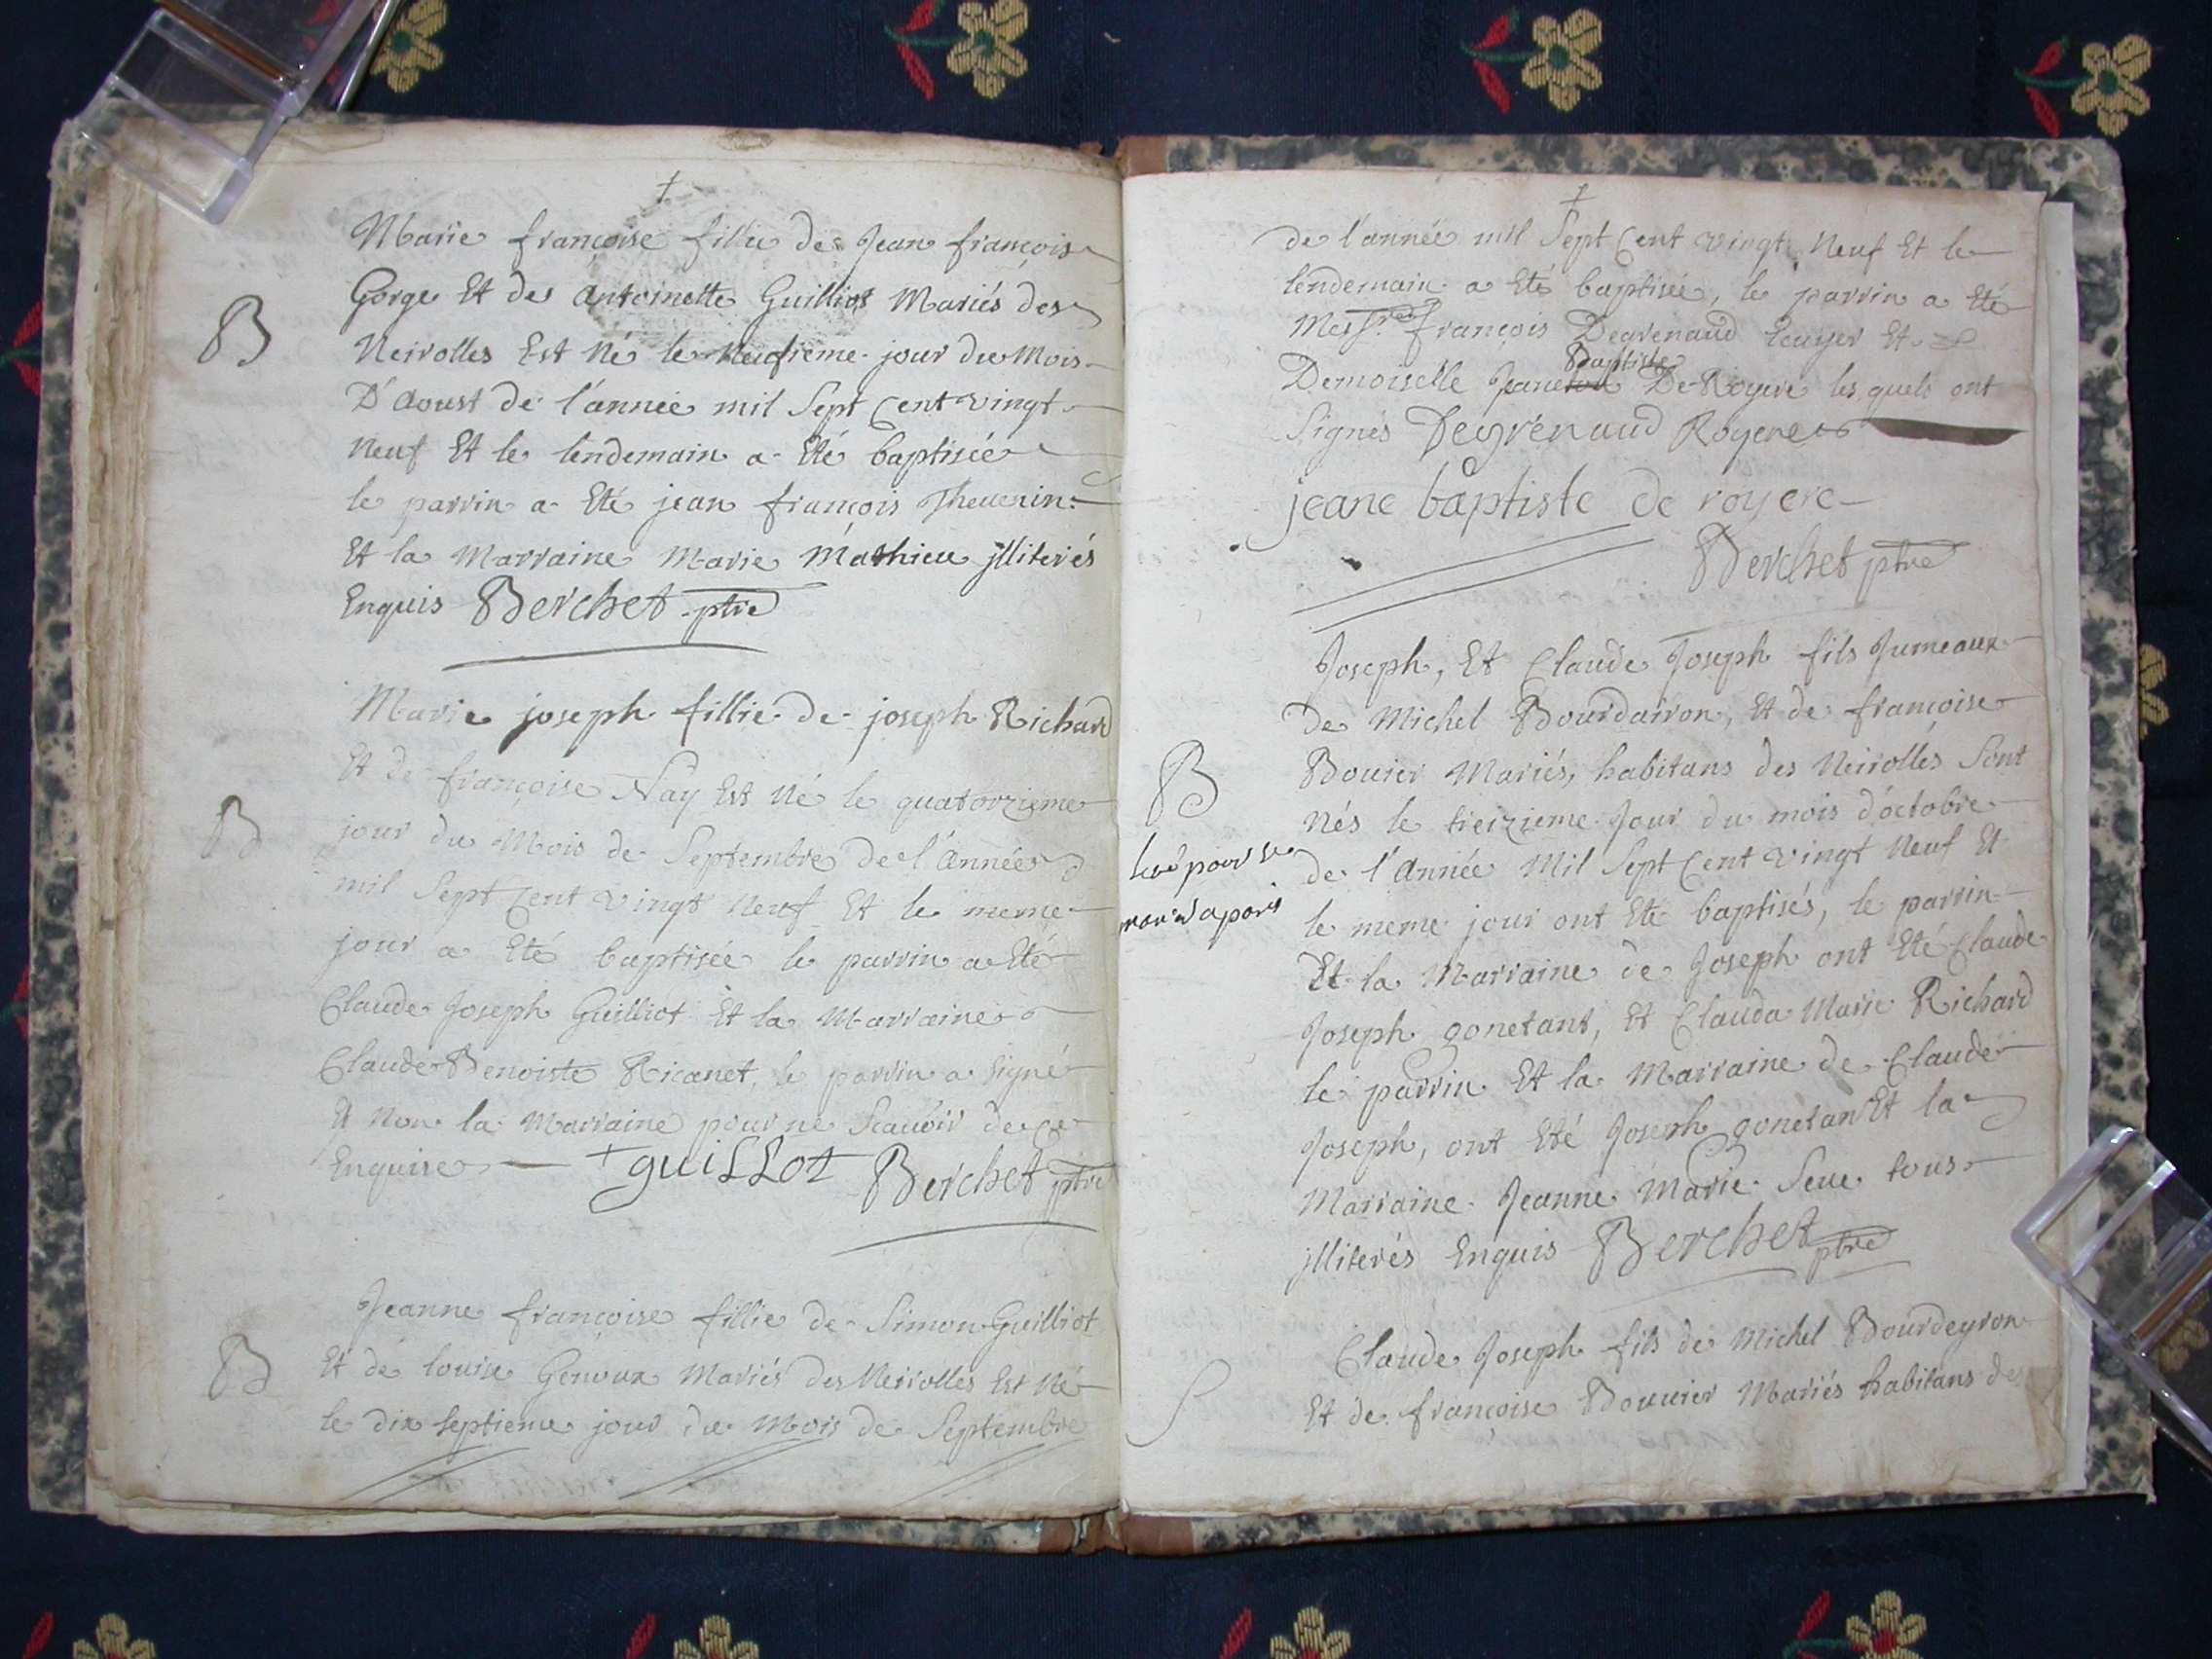 Marie françoise fillie de Jean françois
Gorge Et de Antoinette Guilliot Mariés des
B
Neirolles Est Né le Neufieme jour du Mois
D'Aoust de l'année mil Sept Cent vingt
Neuf Et le lendemain a Eté baptisée
le parrin a Eté jean françois Thevenin
Et la Marraine Marie Mathieu jlliterés
Enquis Berchet ptre
Marie joseph fillie de joseph Richard
Et de françoise Nay Est Né le quatorzieme
B
jour du Mois de Septembre de l'Année
mil Sept Cent vingt Neuf Et le meme
jour a Eté baptisée le parrin a Eté
Claude Joseph Guilliot Et la Marraine
Claude Benoiste Ricanet, le parrin a signé
Et Non la Marraine pour ne Scauoir de ce
Enquise guillot Berchet ptre
Jeanne françoise fillie de Simon Guilliot
B
Et de louise Genoux Mariés des Neirolles Est Né
le dix septieme jour du Mois de Septembre
de l'année mil Sept Cent vingt Neuf Et le
lendemain a Eté baptisée, le parrin a Eté
Messre françois Degrenaud Ecuyer Et
Baptiste
Demoiselle Jeane De Royere les quels ont
Signés Degrénaud Royere
jeane baptiste de royere
Berchet ptre
Joseph, Et Claude Joseph fils Jumeaux
De Michel Bourdairon, Et de françoise
B
Bouier Mariés, habitans des Neirolles Sont
Nés le treizieme Jour du mois d'octobre
levé pour se
de l'Année Mil Sept Cent vingt Neuf Et
marié a paris
le meme jour ont Eté baptisés, le parrin
Et la Marraine de Joseph ont Eté Claude
Joseph gonetant, Et Clauda Marie Richard
le parrin Et la Marraine de Claude
Joseph, ont Eté Joseph gonetan Et la
Marraine Jeanne Marie Seue tous
jlliterés Enquis Berchet ptre
Claude Joseph fils de Michel Bourdeyron
S
Et de françoise Bouuier Mariés habitans des